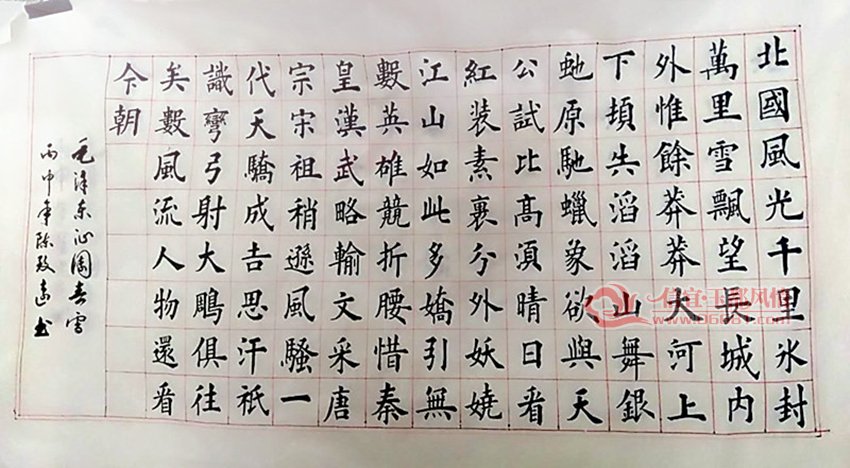 北國風光千里氷封
萬里雪飄望長城内
外惟餘莽莽大河上
下頓失滔滔山舞銀
虵原馳蠟象欲與天
公試比高須晴日看
紅装素裹分外妖嬈
江山如此多嬌引無
數英雄競折腰惜秦
皇漢武略輸文采唐
宗宋祖稍遜風騷一
代天驕成吉思汗祇
識彎弓射大鵰俱往
矣數風流人物還看
今朝
毛泽东沁園春雪
丙申年陈致遠书
信宜·玉都风情